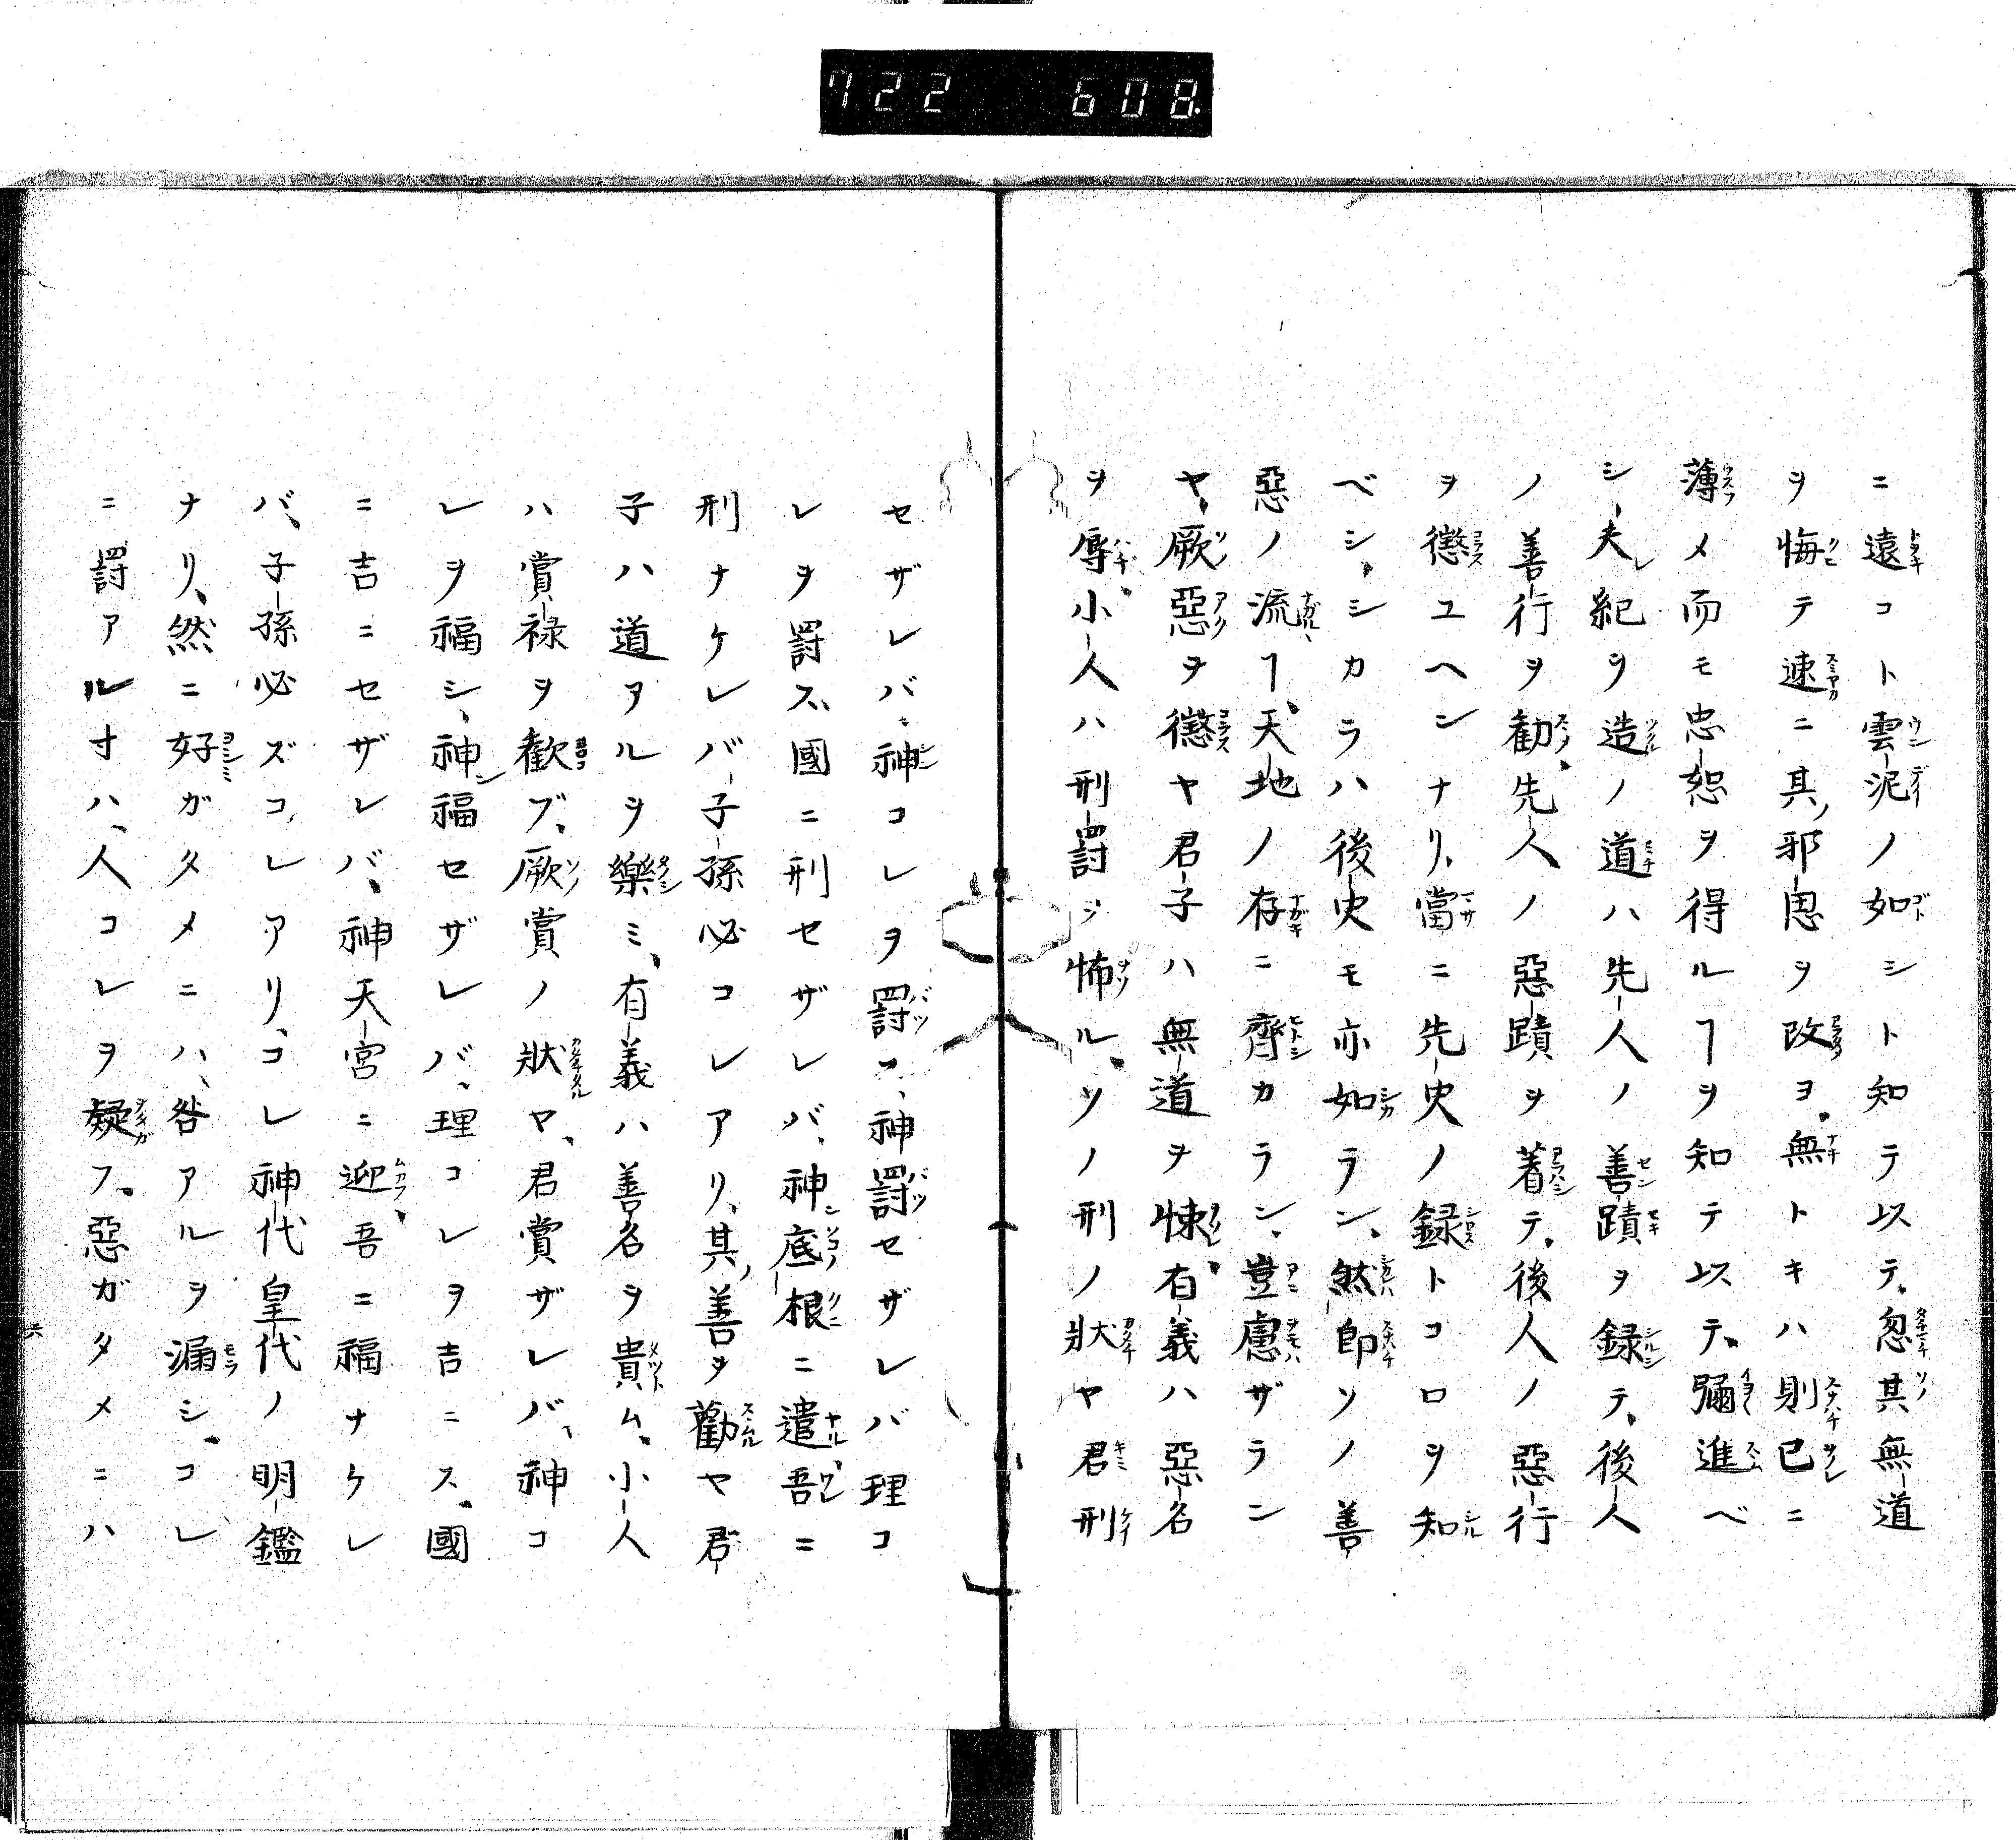 722 608
ニ遠コト雲泥ノ如シト知テ以テ、忽其無道
ヲ悔テ速ニ其邪思ヲ改ヨ、無トキハ則已ニ
薄メ而モ忠恕ヲ得ルヿヲ知テ以テ、彌進ベ
シ、夫紀ヲ造ノ道ハ先人ノ善蹟ヲ録テ、後人
ノ善行ヲ勧、先人ノ惡蹟ヲ著テ、後人ノ惡行
ヲ懲ユヘンナリ、當ニ先史ノ録トコロヲ知
ベシ、シカラハ後史モ亦如ラン、然即ソノ善
惡ノ流ヿ、天地ノ存ニ齊カラン、豈慮ザラン
ヤ、厥惡ヲ懲ヤ君子ハ無道ヲ悚、有義ハ惡名
ヲ辱、小人ハ刑罰ヲ怖ル、ソノ刑ノ狀ヤ君刑
セザレバ、神コレヲ罰ス、神罰セザレバ理コ
レヲ罰ス、國ニ刑セザレバ、神底根ニ遣、吾ニ
刑ナケレバ、子孫必コレアリ、其善ヲ勸ヤ君
子ハ道アルヲ樂ミ、有義ハ善名ヲ貴ム、小人
ハ賞禄ヲ歡ブ、厥賞ノ狀ヤ、君賞ザレバ、神コ
レヲ福シ、神福セザレバ、理コレヲ吉ニス、國
ニ吉ニセザレバ、神天宮ニ迎、吾ニ福ナケレ
バ、子孫必ズコレアリ、コレ神代皇代ノ明鑑
ナリ、然ニ好ガタメニハ、咎アルヲ漏シ、コレ
ニ罰アルヿハ、人コレヲ疑フ、惡ガタメニハ
六